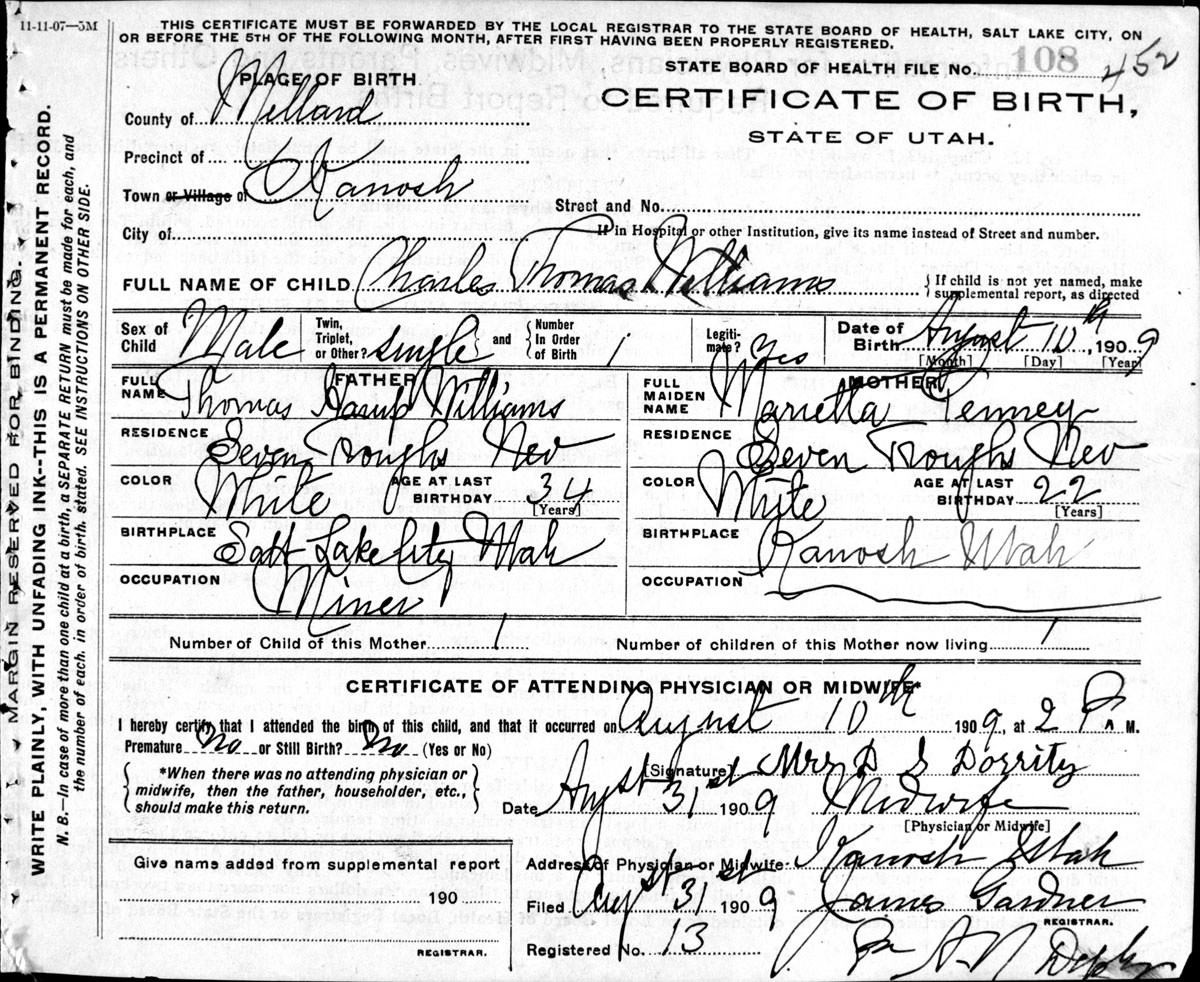 11-11-07—5M
THIS CERTIFICATE MUST BE FORWARDED BY THE LOCAL REGISTRAR TO THE STATE BOARD OF HEALTH, SALT LAKE CITY, ON
OR BEFORE THE 5TH OF THE FOLLOWING MONTH, AFTER FIRST HAVING BEEN PROPERLY REGISTERED.
PLACE OF BIRTH
STATE BOARD OF HEALTH FILE No. 108 452
CERTIFICATE OF BIRTH,
STATE OF UTAH.
County of Millard
Precinct of
Town or Village of Kanosh
Street and No.
City of
If in Hospital or other Institution, give its name instead of Street and number.
FULL NAME OF CHILD Charles Thomas Williams
{ If child is not yet named, make
supplemental report, as directed
Sex of Child Male
Twin, Triplet, or Other? single and { Number In Order of Birth 1
Legitimate? Yes
Date of Birth August 10th, 1909
[Month] [Day] [Year]
FATHER
FULL NAME Thomas Williams
RESIDENCE Seven Troughs Nev
COLOR White AGE AT LAST BIRTHDAY 34 [Years]
BIRTHPLACE Salt Lake City Utah
OCCUPATION Miner
MOTHER
FULL MAIDEN NAME Marietta Penney
RESIDENCE Seven Troughs Nev
COLOR White AGE AT LAST BIRTHDAY 22 [Years]
BIRTHPLACE Kanosh Utah
OCCUPATION
Number of Child of this Mother 1
Number of children of this Mother now living 1
CERTIFICATE OF ATTENDING PHYSICIAN OR MIDWIFE*
I hereby certify that I attended the birth of this child, and that it occurred on August 10th 1909, at 2 P A M.
Premature no or Still Birth? no (Yes or No)
{ *When there was no attending physician or
midwife, then the father, householder, etc.,
should make this return. }
[Signature] Mrs D S Dorrity
Date Augst 31st 1909 Midwife
[Physician or Midwife]
Give name added from supplemental report
190
REGISTRAR.
Address of Physician or Midwife: Kanosh Utah
Filed Aug 31st 1909 James Gardner
REGISTRAR.
Registered No. 13
MARGIN RESERVED FOR BINDING.
WRITE PLAINLY, WITH UNFADING INK--THIS IS A PERMANENT RECORD.
N. B.—In case of more than one child at a birth, a SEPARATE RETURN must be made for each, and
the number of each, in order of birth, stated. SEE INSTRUCTIONS ON OTHER SIDE.